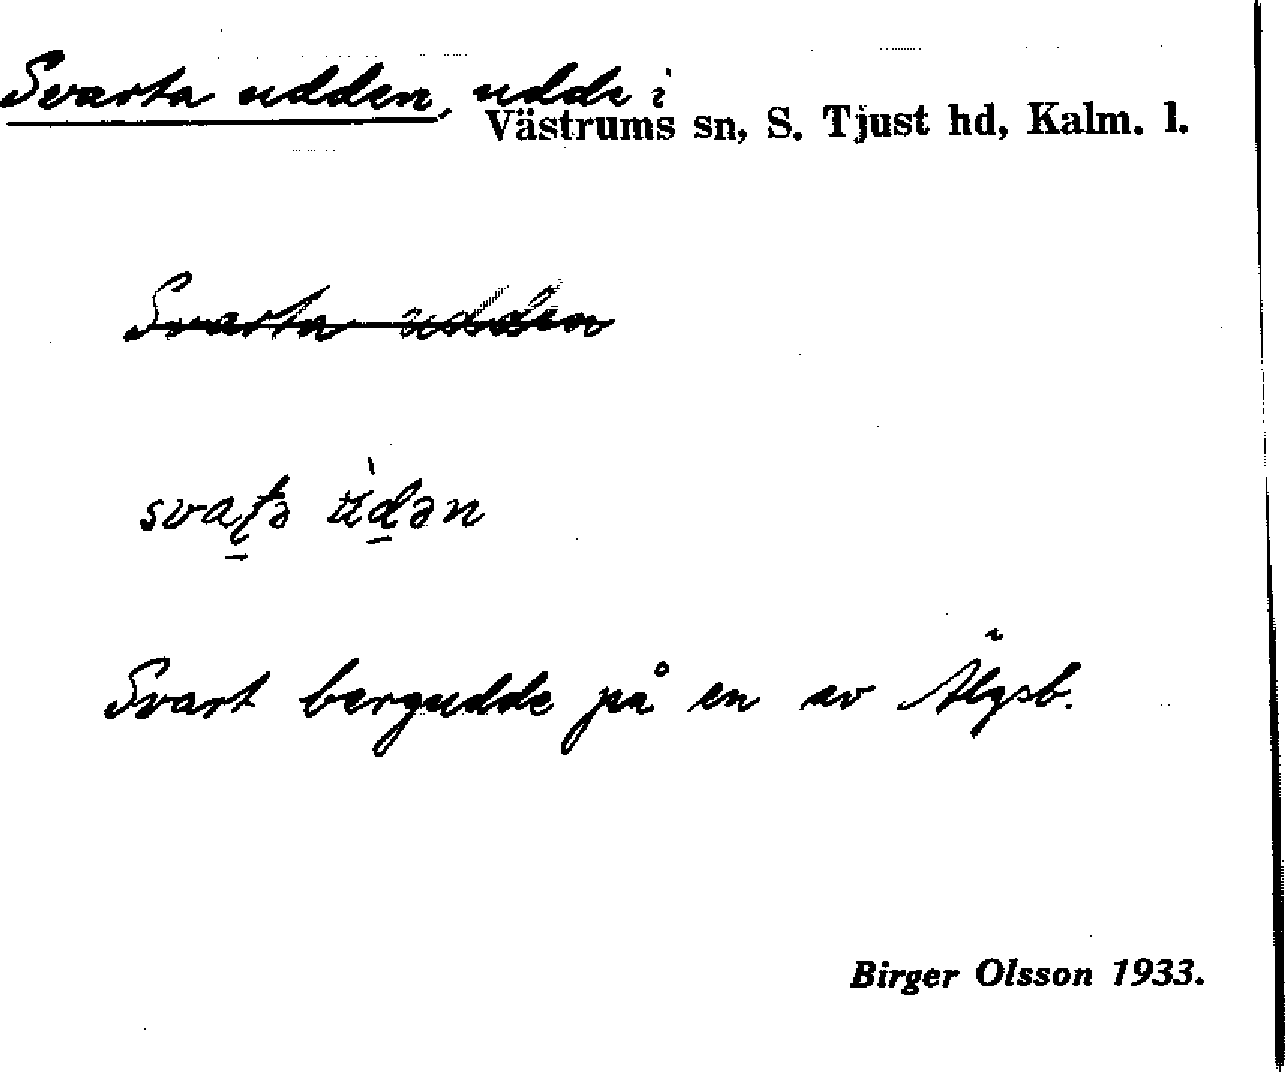 Svarta udden, udde i
Västrums sn, S. Tjust hd, Kalm. l.
Svarta udden
svaʈə ùdən
Svart bergudde på en av Älgsb.
Birger Olsson 1933.